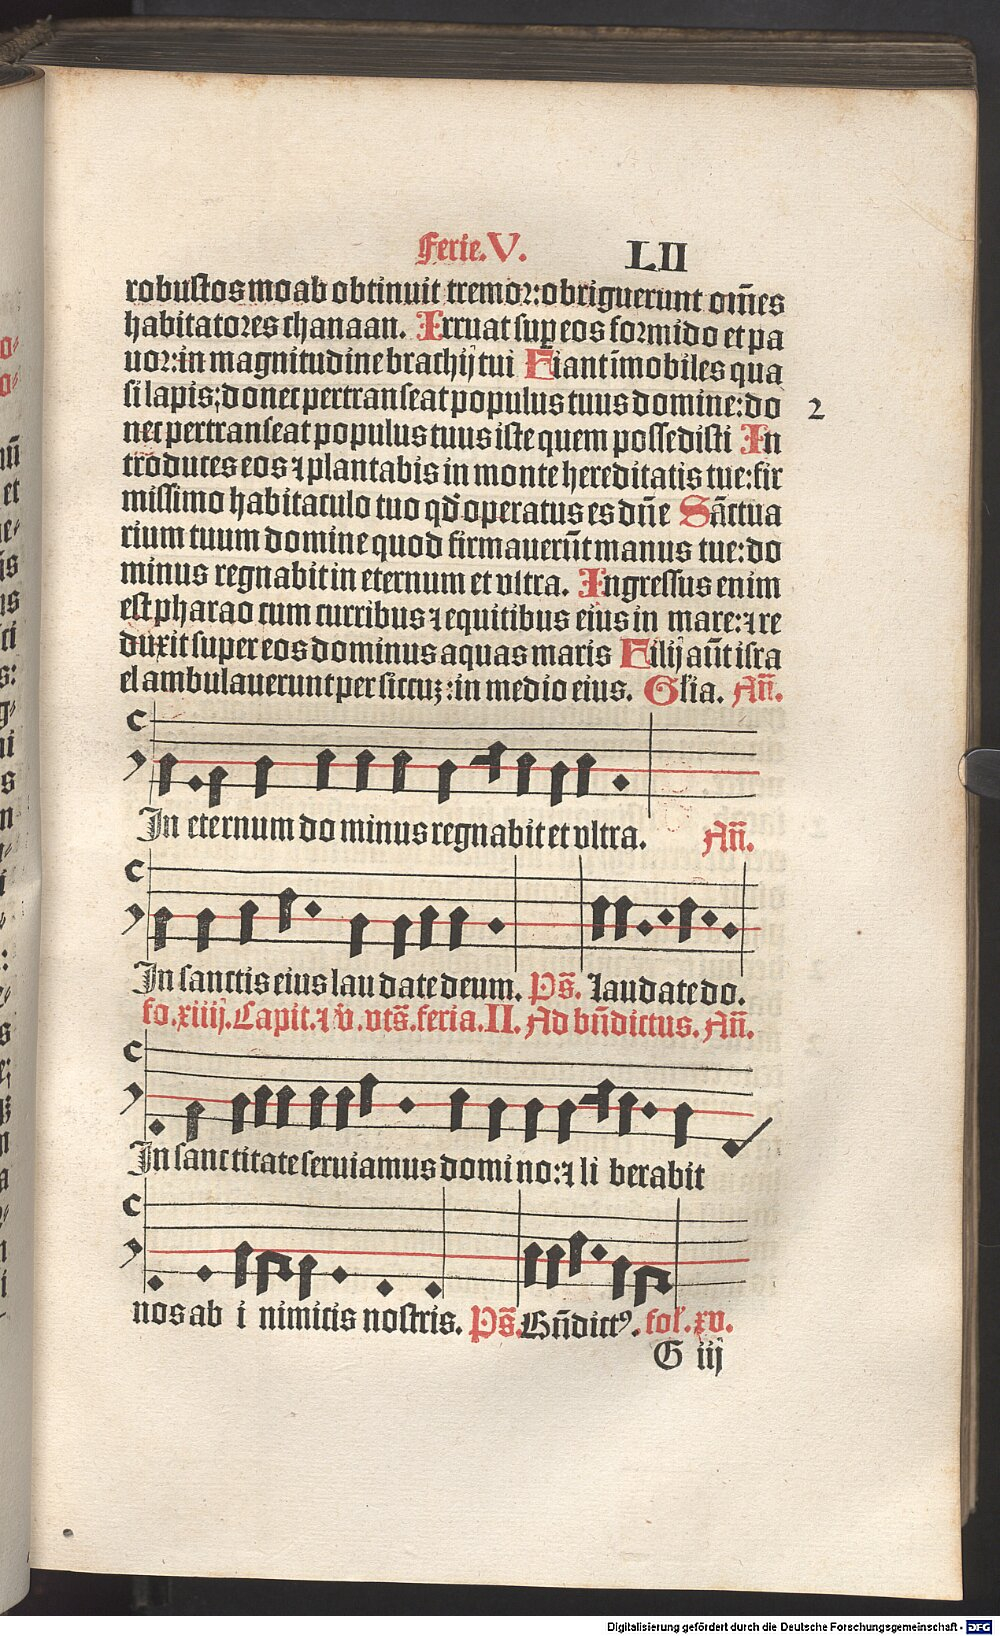 Ferie. V. LII
robustos moab obtinuit tremor: obriguerunt om̄es
habitatores chanaan. Irruat suꝑ eos formido et pa
uor: in magnitudine brachij tui Fiant īmobiles qua
si lapis; donec pertranseat populus tuus domine: do
2
nec pertranseat populus tuus iste quem possedisti In
troduces eos ⁊ plantabis in monte hereditatis tue: fir
missimo habitaculo tuo qd̄ operatus es dn̄e Sāctua
rium tuum domine quod firmauerūt manus tue: do
minus regnabit in eternum et vltra. Ingressus enim
est pharao cum curribus ⁊ equitibus eius in mare: ⁊ re
duxit super eos dominus aquas maris Filij aūt isra
el ambulauerunt per siccuꝫ: in medio eius. Gl̄ia. An̄.
In eternum do minus regnabit et vltra. An̄.
In sanctis eius lau date deum. Ps̄. Laudate do.
fo. xiiij. Capit. ⁊ v̄. vts̄. feria. II. Ad bn̄dictus. An̄.
In sanc titate seruiamus domi no: ⁊ li berabit
nos ab i nimicis nostris. Ps̄. Bn̄dictꝰ. fol̄. xv.
G iij
Digitalisierung gefördert durch die Deutsche Forschungsgemeinschaft - DFG